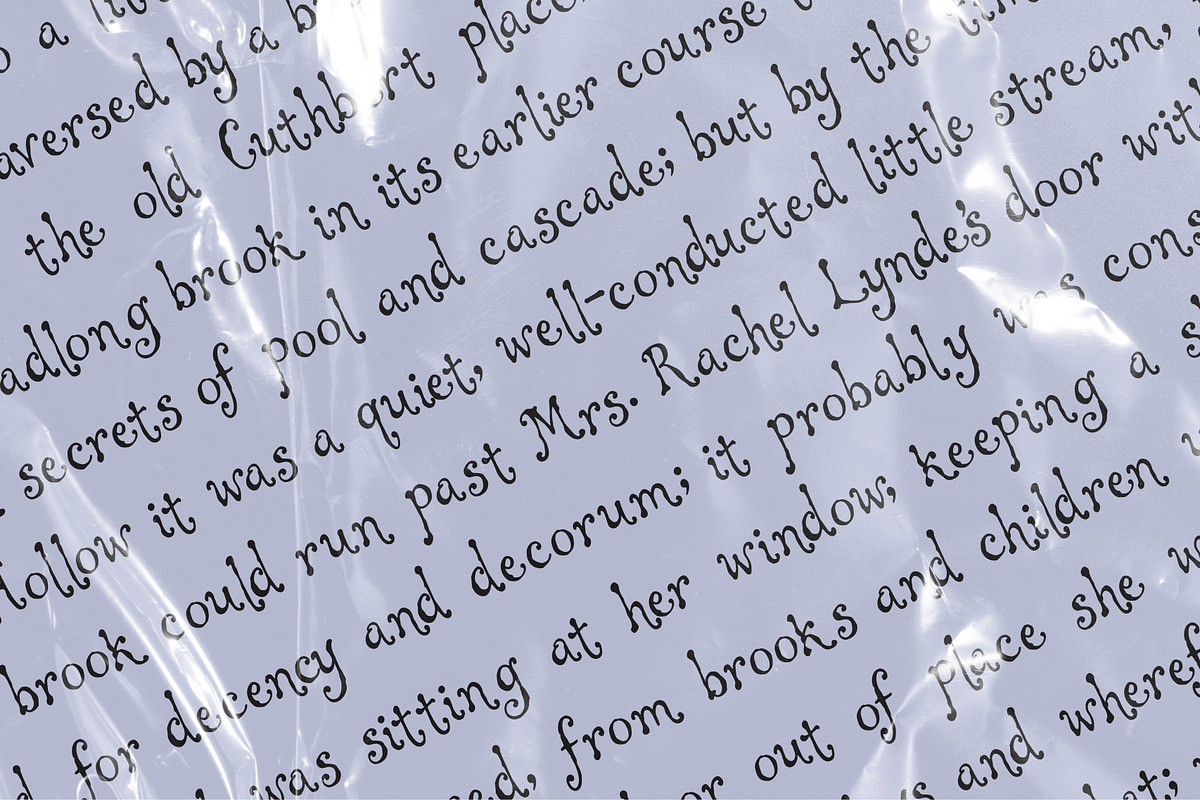 a
aversed by a
the old Cuthbert place
adlong brook in its earlier course
secrets of pool and cascade; but by the
Hollow it was a quiet, well-conducted little stream,
brook could run past Mrs. Rachel Lynde's door with
for decency and decorum; it probably was cons
was sitting at her window, keeping a
ed, from brooks and children
or out of place she
and wheref